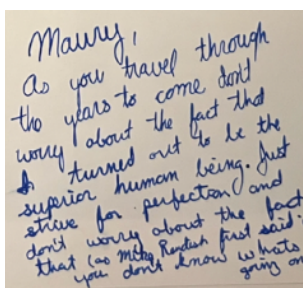 Maury,
As you travel through
the years to come don't
worry about the fact that
I turned out to be the
superior human being. Just
strive for perfection and
don't worry about the fact
that (as Mike first said)
you don't know whats
going on